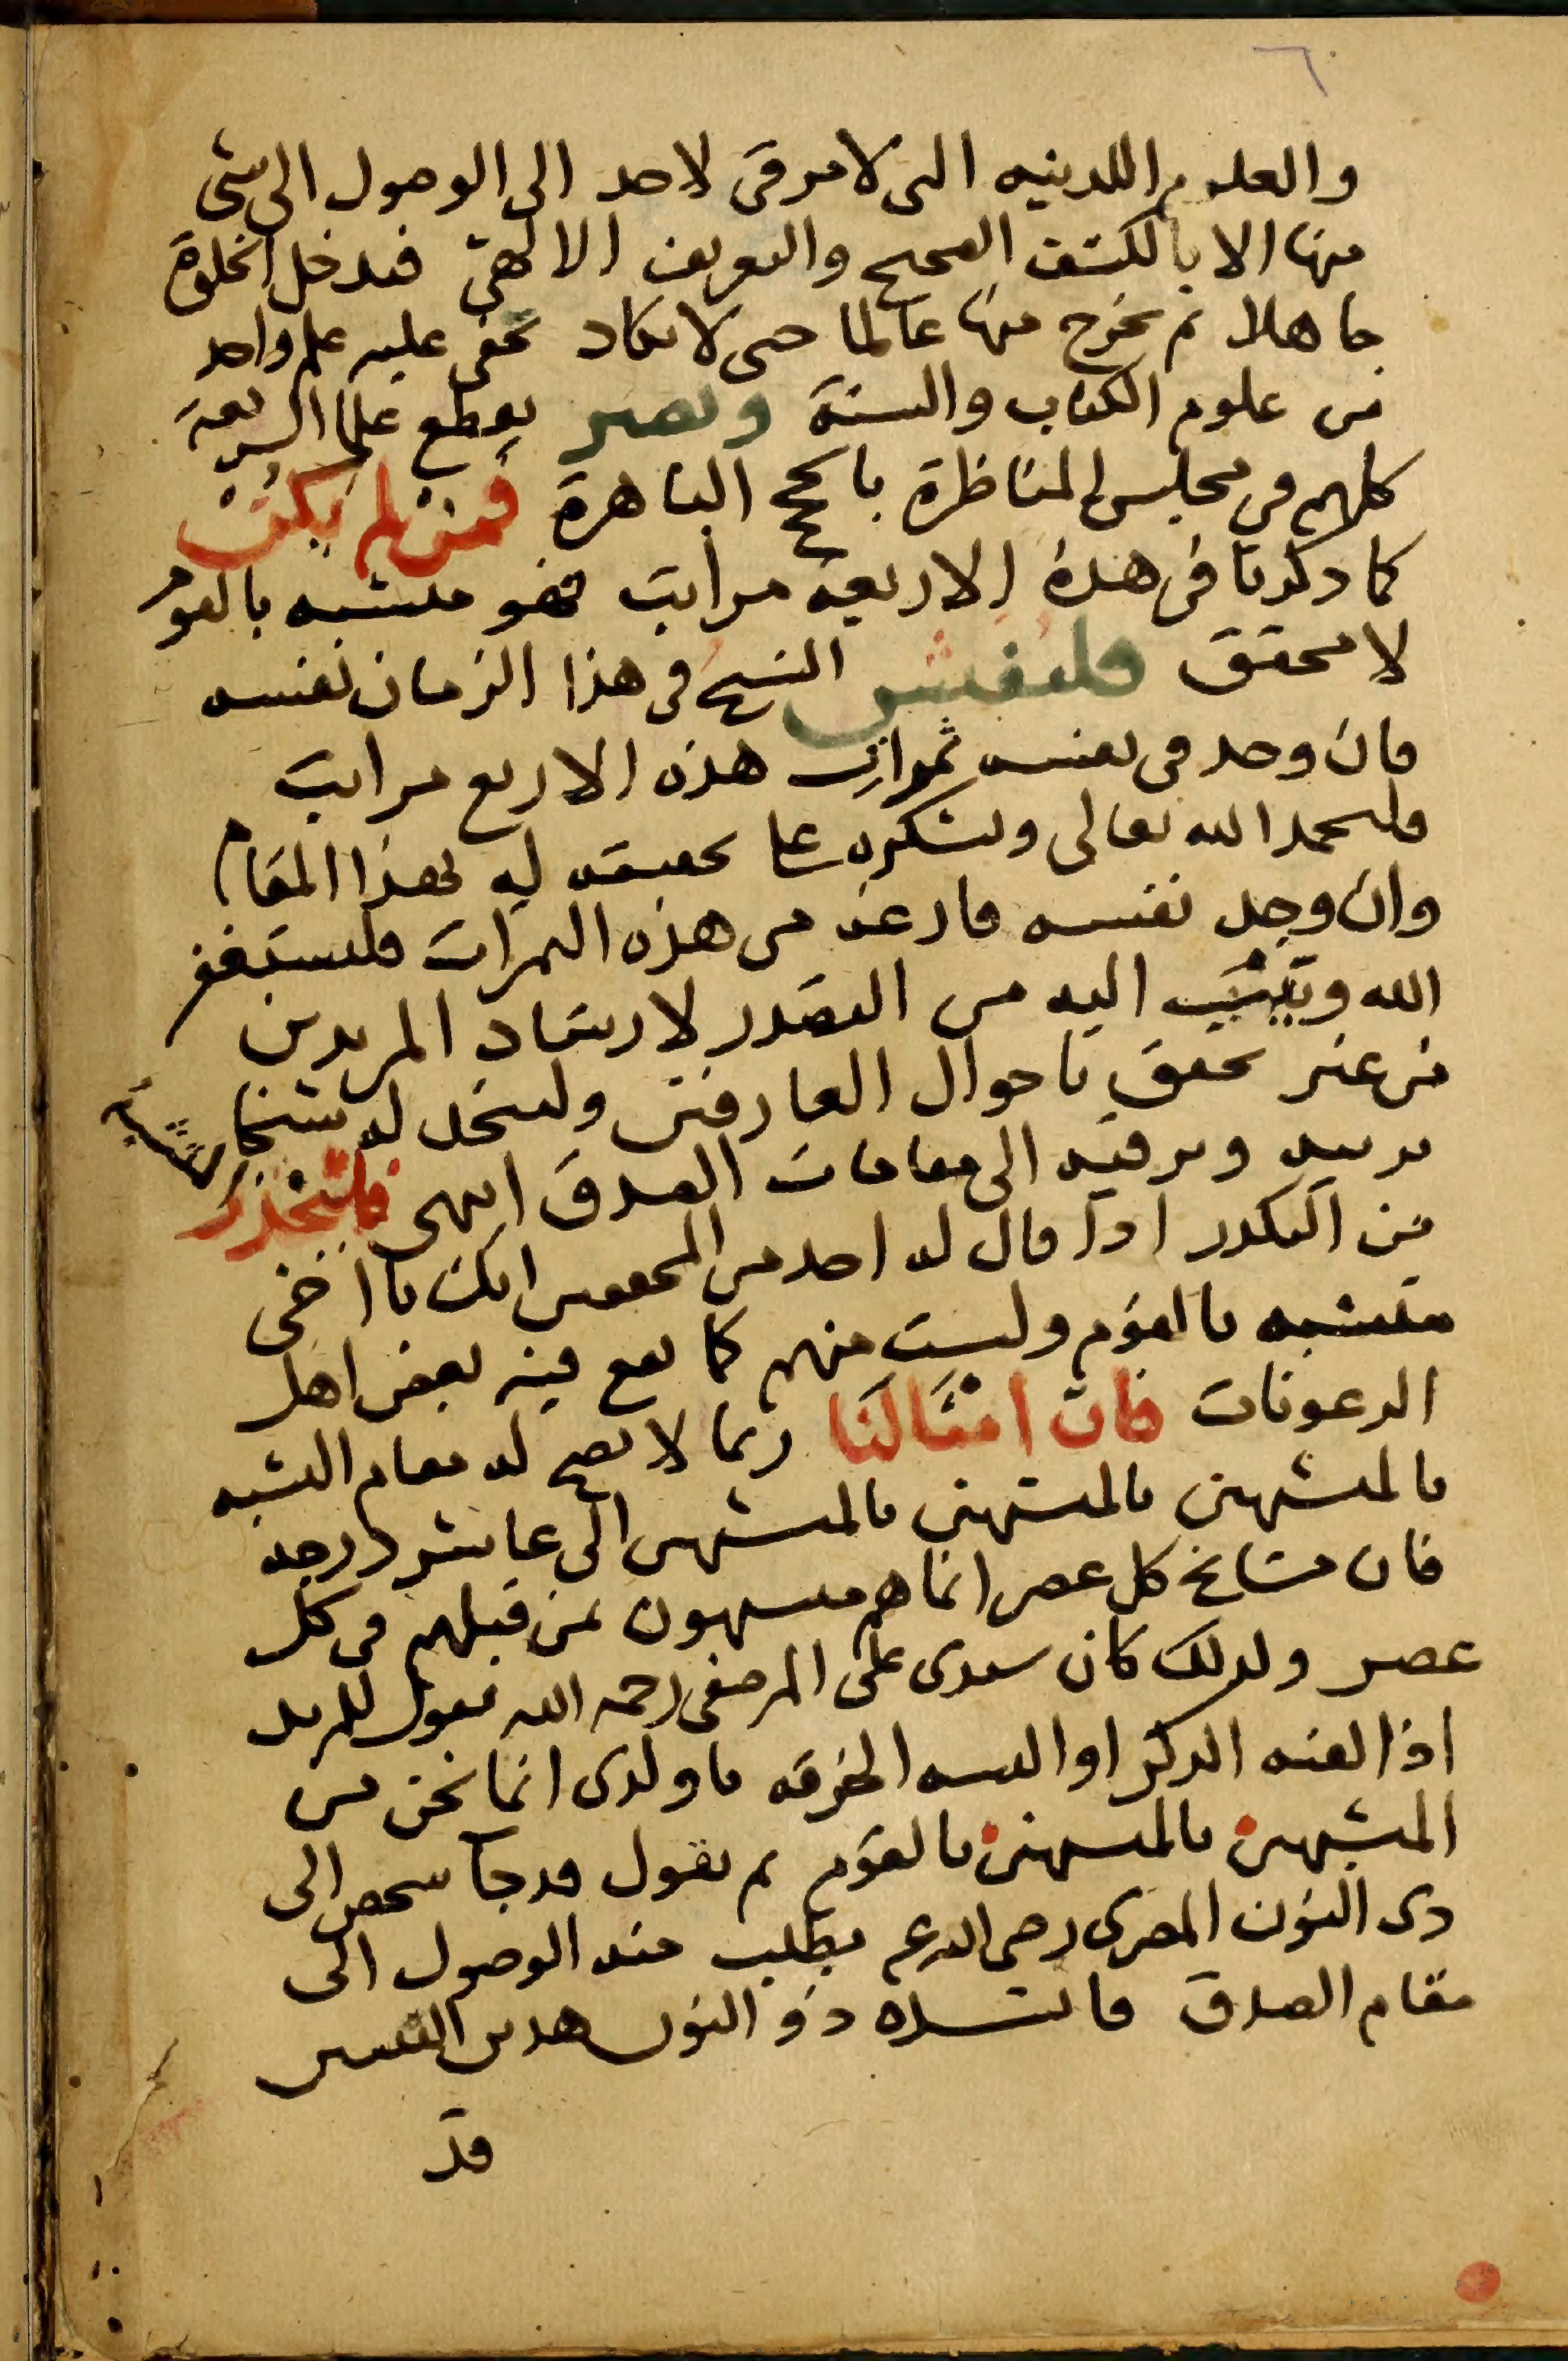 ٦٠
والعلوم اللدنيه التى لا مرقى لاحد الى الوصول الى شى
منها الا بالكشف الصحيح والتعريف الالهى فيدخل الخلوة
جاهلا ثم يخرج منها عالما حتى لا يكاد يخفى عليه علم واحد
من علوم الكتاب والسنة ويصير يقطع علما الشريعة
كلهم فى مجلس المناظرة بالحجج الباهرة فمن لم يكن
كما ذكرنا فى هذه الاربعة مراتب فهو متشبه بالقوم
لا محقق فليفتش الشيخ فى هذا الزمان نفسه
فان وجد فى نفسه ثمرات هذه الاربع مراتب
فليحمد الله تعالى وليشكره على تحقيقه له بهذا المقام
وان وجد نفسه فارغة من هذه الثمرات فليستغفر
الله ويتب اليه من التصدر لارشاد المريدين
من غير تحقق باحوال العارفين وليتخذ له شيخا
يربيه ويرقيه الى مقامات الصدق انتهى فليحذر الشيخ
من التكدر اذا قال له احد من المحققين انك يا اخى
متشبه بالقوم ولست منهم كما يقع فيه بعض اهل
الرعونات فان امثالنا ربما لا يصح له مقام التشبه
بالمتشبهين بالمتشبهين بالمتشبهين الى عاشر درجه
فان مشايخ كل عصر انما هم متشبهون بمن قبلهم فى كل
عصر ولذلك كان سيدى على المرصفى رحمه الله يقول للمريد
اذا لقنه الذكر او البسه الخرقه يا ولدى انما نحن من
المتشبهين بالمتشبهين بالقوم ثم يقول قد جا شخص الى
ذى النون المصرى رضى الله عنه يطلب منه الوصول الى
مقام الصدق فانشده ذو النون هدين البيتين
قد